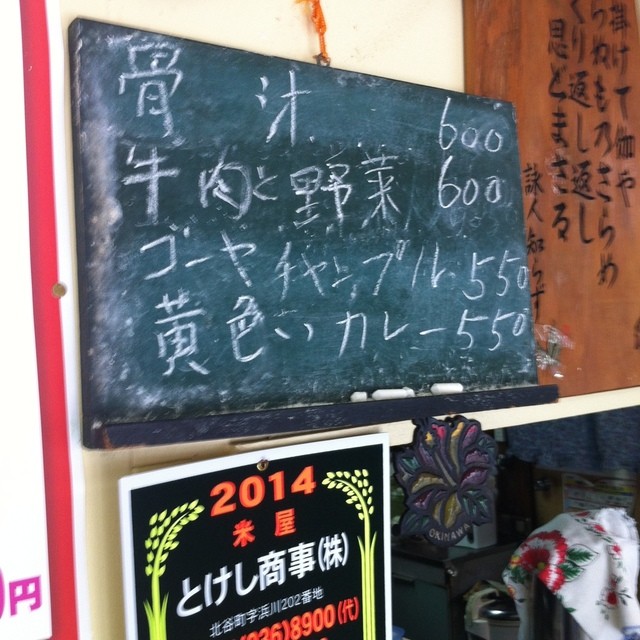 骨汁 600
牛肉と野菜 600
ゴーヤチャンプル 550
黄色いカレー 550
掛けて伽や
らぬものさらめ
くり返し返し
思どまさる
詠人知らず
2014
米屋
とけし商事(株)
北谷町字浜川202番地
(936)8900(代)
OKINAWA
円